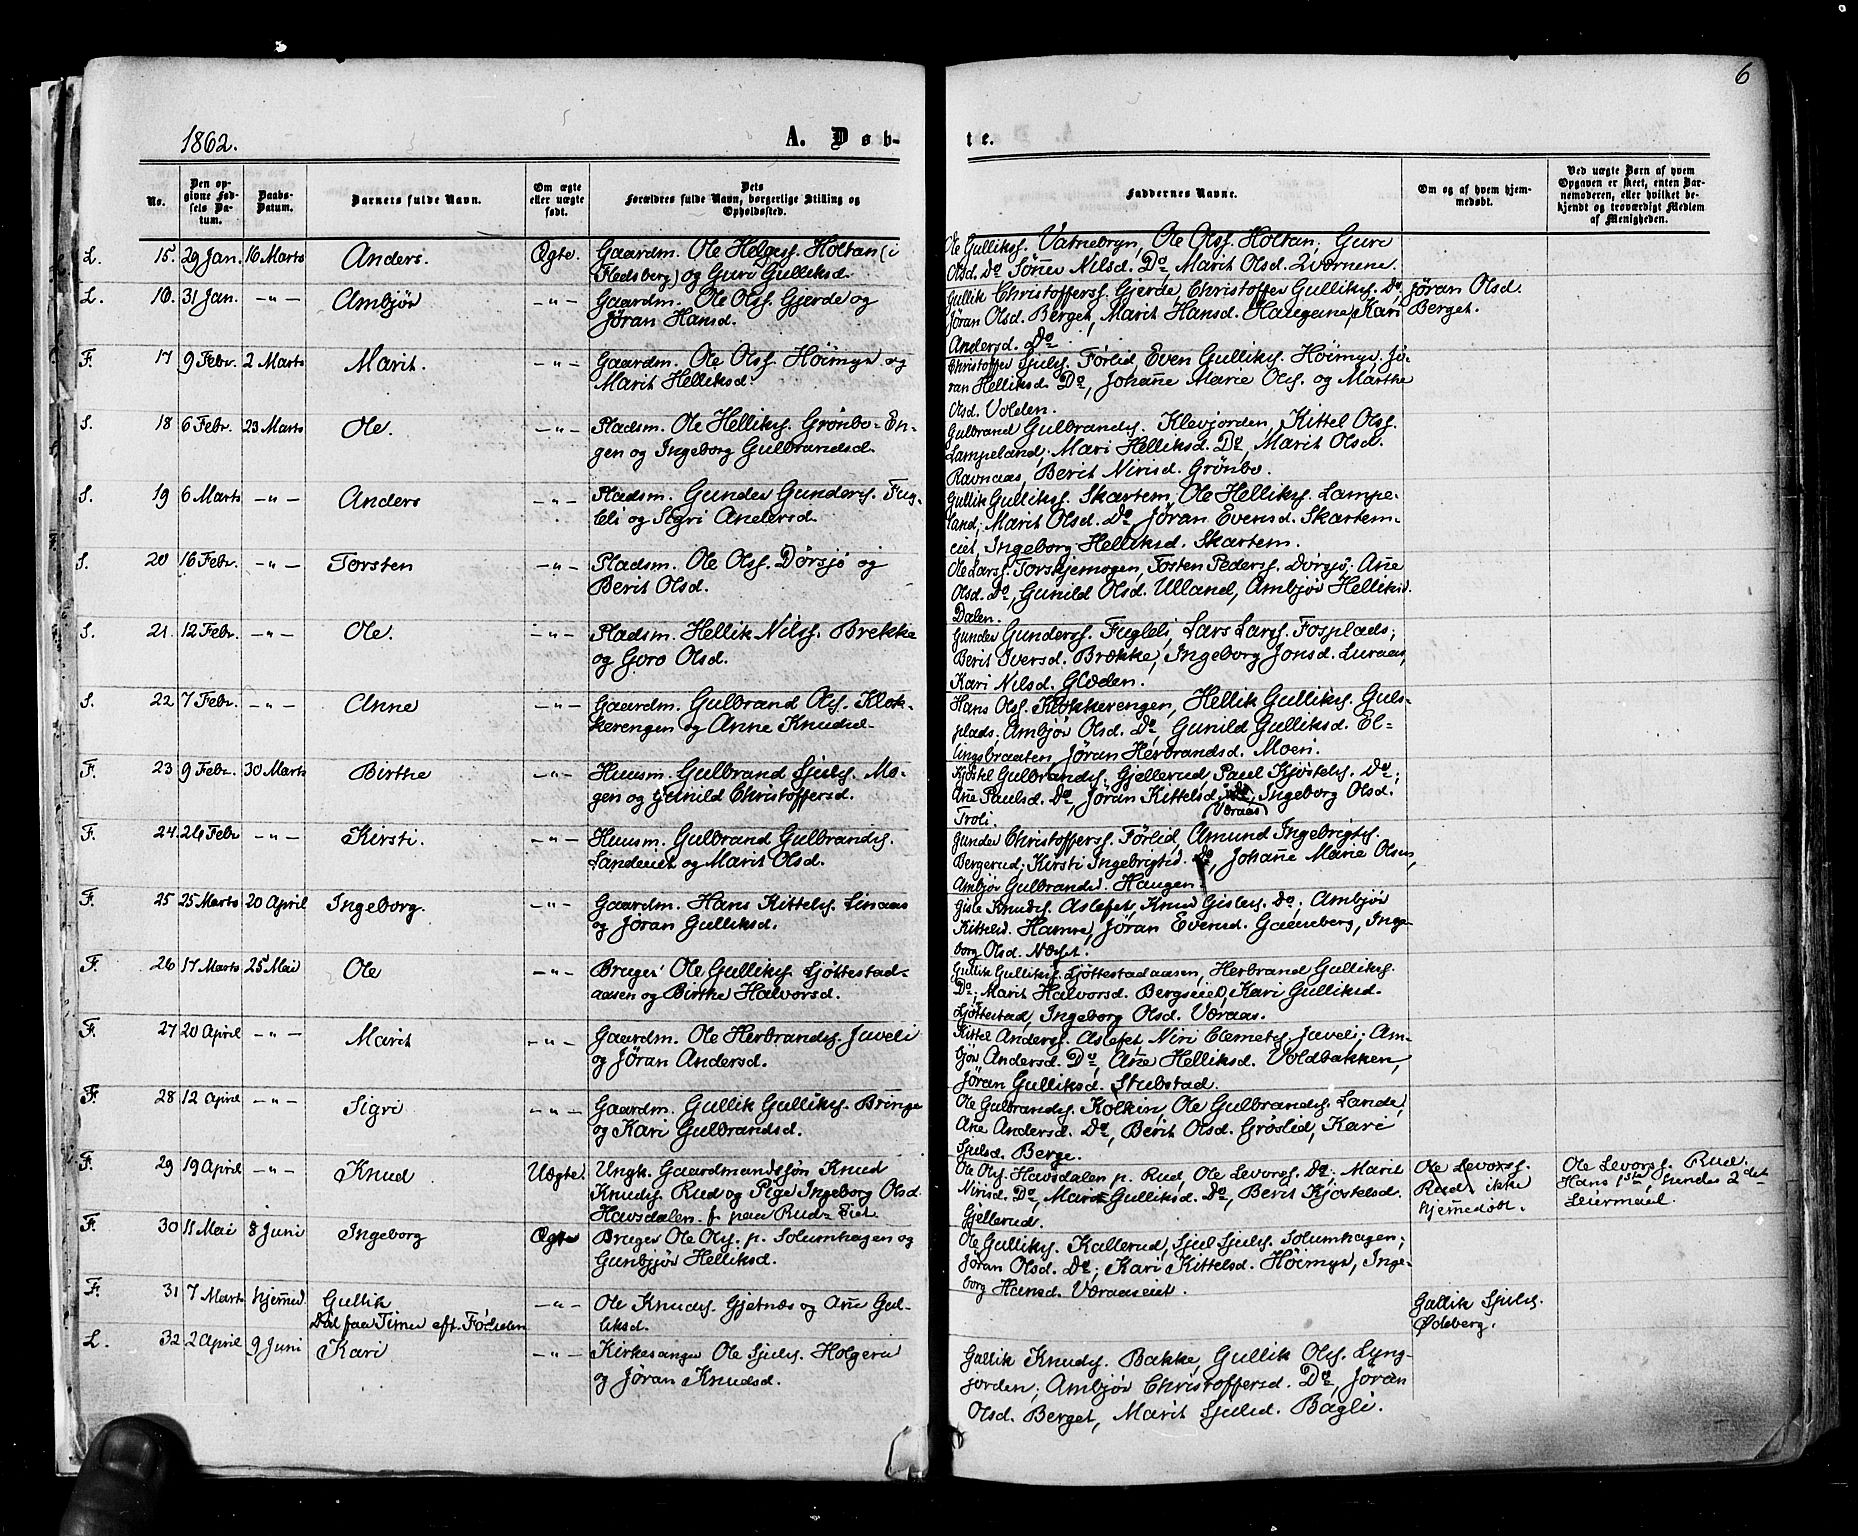 6
1862.
A. Døb-
te.
No.
Den opgivne Fødsels Datum.
Daabs-Datum.
Barnets fulde Navn.
Om ægte eller uægte født.
Dets Forældres fulde Navn, borgerlige Stilling og Opholdssted.
Faddernes Navne.
Om og af hvem hjemmedøbt.
Ved uægte Børn af hvem Opgaven er skeet, enten Barnemoderen, eller hvilket bekjendt og troværdigt Medlem af Menigheden.
L. 15. 29 Jan. 16 Marts Anders. Ægte. Gaardm. Ole Helges. Holtan (i
Fledsberg) og Guri Gulliksd.
Ole Gulliks. Vatnebryn, Ole Ols. Holtan; Guri
Olsd. Do Tønne Nilsd. Do, Marit Olsd. Qværnene.
L. 16. 31 Jan. -"- Ambjør -"- Gaardm. Ole Ols. Gjerde og
Jøran Hansd.
Gullik Christoffers. Gjerde, Christoffer Gulliks. Do, Jøran Olsd.
Jøran Olsd. Berget, Marit Hansd. Haugene, Kari Berget.
Andersd. Do.
F. 17 9 Febr. 2 Marts Marit. -"- Gaardm. Ole Ols. Höimyr og
Marit Helliksd.
Christoffer Sjuls. Førlid, Even Gulliks. Höimyr, Jö-
ran Helliksd. Do, Johanne Marie Ols. og Marthe
Olsd. Volden.
S. 18 6 Febr. 23 Marts Ole. -"- Pladsm. Ole Helliks. Grönbo-En-
gen og Ingeborg Gulbrandsd.
Gulbrand Gulbrands. Klevjorden, Kittel Ols.
Lampeland, Mari Helliksd. Do, Marit Olsd.
Ravnaas, Berit Nirisd. Grönbo.
S. 19 6 Marts -"- Anders -"- Pladsm. Gunder Gunders. Fug-
leli og Sigri Andersd.
Gullik Gulliks. Skartem, Ole Helliks. Lampe-
land; Marit Olsd. Do, Jøran Evensd. Skartem-
eiet, Ingeborg Helliksd. Skartem.
S. 20 16 Febr. -"- Torsten -"- Pladsm. Ole Ols. Dørsjø og
Berit Olsd.
Ole Lars. Torskjemogen, Tosten Peders. Dørsjö, Ane
Olsd. Do, Gunild Olsd. Ulland, Ambjør Helliksd.
Dalen.
S. 21. 12 Febr. -"- Ole. -"- Pladsm. Hellik Nils. Brekke
og Goro Olsd.
Gunder Gunders. Fugleli, Lars Lars. Fosplads;
Berit Iversd. Brække, Ingeborg Jonsd. Luraas,
Kari Nilsd. Glæden.
S. 22 7 Febr. -"- Anne -"- Gaardm. Gulbrand Ols. Klok-
kerengen og Anne Knudsd.
Hans Ols. Klokkerengen, Hellik Gulliks. Guls-
plads; Ambjør Olsd. Do, Gunild Gulliksd. El-
lingsbraaten, Jøran Herbrandsd. Moen.
F. 23 9 Febr. 30 Marts Birthe -"- Huusm. Gulbrand Sjuls. Mo-
gen og Gunild Christoffersd.
Kjøstel Gulbrands. Gjellerud, Paul Kjøstels. Do;
Ane Paulsd. Do, Jøran Kittelsd. (Væraas) Ingeborg Olsd.
Troli.
F. 24. 24 Febr -"- Kirsti. -"- Huusm. Gulbrand Gulbrands.
Landeeiet og Marit Olsd.
Gunder Christoffers. Førlid, Amund Ingebrigts.
Bergerud; Kirsti Ingebrigtsd. Do, Johanne Marie Olsen,
Ambjør Gulbrandsd. Haugen.
F. 25 25 Marts 20 April Ingeborg. -"- Gaardm. Hans Kittels. Linaas
og Jøran Gulliksd.
Gisle Knuds. Aslefet, Knud Gisles. Do; Ambjør
Kittelsd. Hamre, Jøran Evensd. Gaaneberg, Inge-
borg Olsd. Næset.
F. 26 17 Marts 25 Mai Ole -"- Bruger Ole Gulliks. Ljöttestad-
aasen og Birthe Halvorsd.
Gullik Gulliks. Ljöttestadaasen, Herbrand Gulliks.
Do; Marit Halvorsd. Bergseiet, Kari Gulliksd.
Ljöttestad, Ingeborg Olsd. Væraas.
F. 27 20 April -"- Marit -"- Gaardm. Ole Herbrands. Juveli
og Jøran Andersd.
Kittel Anders. Aslefet, Niri Clemets. Juveli; Am-
bjør Andersd. Do, Ane Helliksd. Voldbakken,
Jøran Gulliksd. Stubstad.
F. 28 12 April -"- Sigri -"- Gaardm. Gullik Gulliks. Bringe
og Kari Gulbrandsd.
Ole Gulbrands. Kolkin, Ole Gulbrands. Lande,
Ane Andersd. Do, Berit Olsd. Grøslid, Kari
Sjulsd. Berge.
F. 29 19 April -"- Knud Uægte. Ungk. Gaardmandssøn Knud
Knuds. Rud og Pige Ingeborg Olsd.
Havsdalen f. paa Ruds Eiet.
Ole Ols. Havsdalen p. Rud, Ole Levors. Do; Marit
Nirisd. Do, Marit Gulliksd. Do, Berit Kjøstelsd.
Gjellerud.
Ole Levors.
Rud, ikke
hjemedöbt.
Ole Levors. Rud.
Hans 1ste, hendes 2det
Leiermaal.
F. 30 11 Mai 8 Juni Ingeborg Ægte Bruger Ole Ols. p. Solumhagen og
Gunbjør Helliksd.
Ole Gulliks. Kallerud, Sjul Sjuls. Solumhagen;
Jøran Olsd. Do; Kari Kittelsd. Höimyr, Inge-
borg Hansd. Væraaseiet.
F. 31 7 Marts hjemed Gullik -"- Ole Knuds. Gjetnæs og Ane Gul-
Död faa Timer eft. Födselen liksd.
Gullik Sjuls.
Ødeberg.
L. 32 2 April 9 Juni Kari -"- Kirkesanger Ole Sjuls. Holgera
og Jøran Knudsd.
Gullik Knuds. Bakke, Gullik Ols. Lyng-
jorden; Ambjør Christoffersd. Do, Jøran
Olsd. Berget, Marit Sjulsd. Bagli.